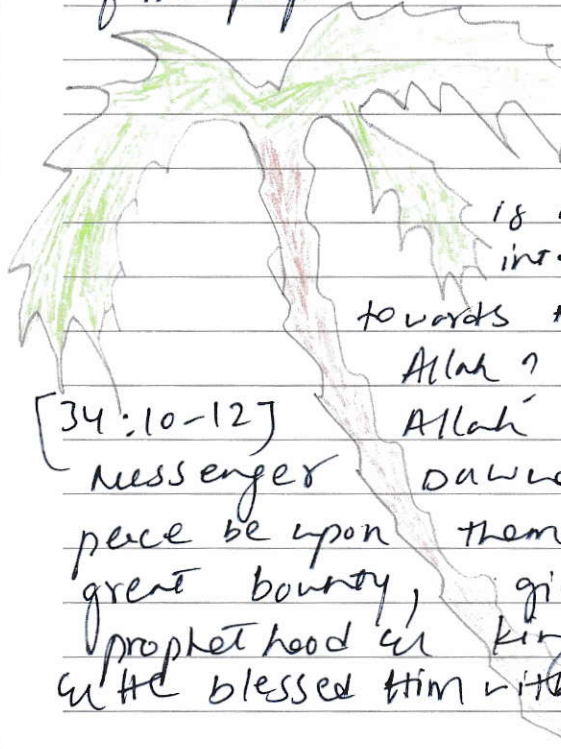 is
towards
Allah ?
[34:10-12] Allah
Messenger Dawu
peace be upon them
great bounty, gi
prophethood & kin
& HE blessed Him with